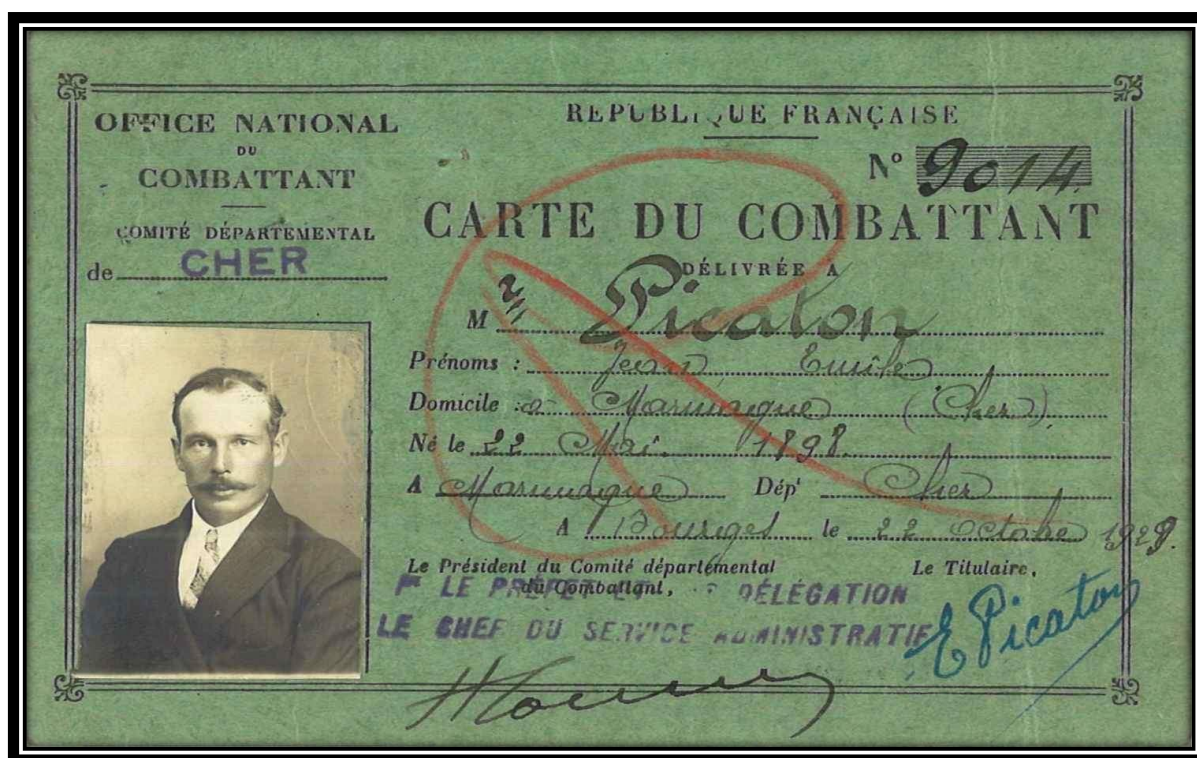 OFFICE NATIONAL
DU
COMBATTANT
COMITÉ DÉPARTEMENTAL
de CHER
REPUBLIQUE FRANÇAISE
N° 9014
CARTE DU COMBATTANT
DÉLIVRÉE A
M Picaton
Prénoms : Jean Emile
Domicile : à Marmagne (Cher)
Né le 22 Mai 1898
A Marmagne Dépt Cher
A Bourges le 22 Octobre 1929.
Le Président du Comité départemental
du Combattant,
Le Titulaire,
Pr LE PRÉFET ET DÉLÉGATION
LE CHEF DU SERVICE ADMINISTRATIF
E Picaton